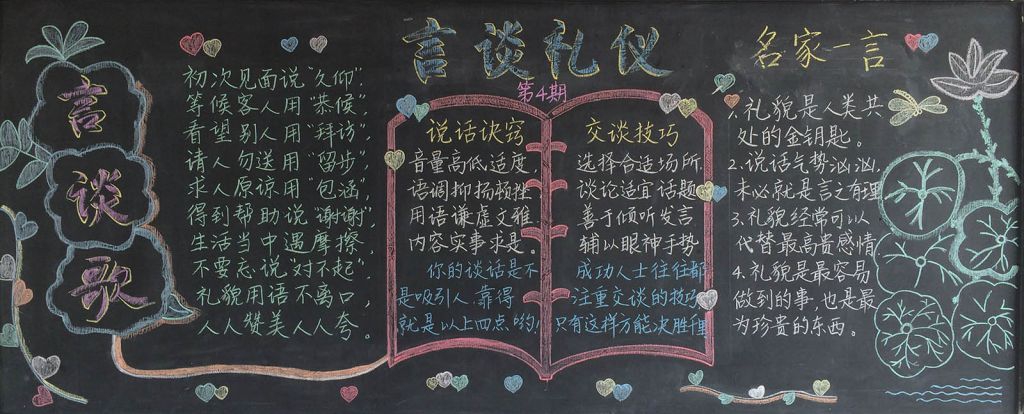 言谈礼仪
第4期
言谈歌
初次见面说"久仰",
等候客人用"恭候",
看望别人用"拜访",
请人勿送用"留步",
求人原谅用"包涵",
得到帮助说"谢谢",
生活当中遇摩擦,
不要忘说"对不起",
礼貌用语不离口,
人人赞美人人夸。
说话诀窍
音量高低适度,
语调抑扬顿挫.
用语谦虚文雅.
内容实事求是。
你的谈话是不
是吸引人,靠得
就是以上四点哟!
交谈技巧
选择合适场所,
谈论适宜话题
善于倾听发言
辅以眼神手势
成功人士往往都
注重交谈的技巧
只有这样方能决胜千里
名家一言
1.礼貌是人类共
处的金钥匙。
2.说话气势汹汹,
未必就是言之有理
3.礼貌经常可以
代替最高贵感情
4.礼貌是最容易
做到的事,也是最
为珍贵的东西。